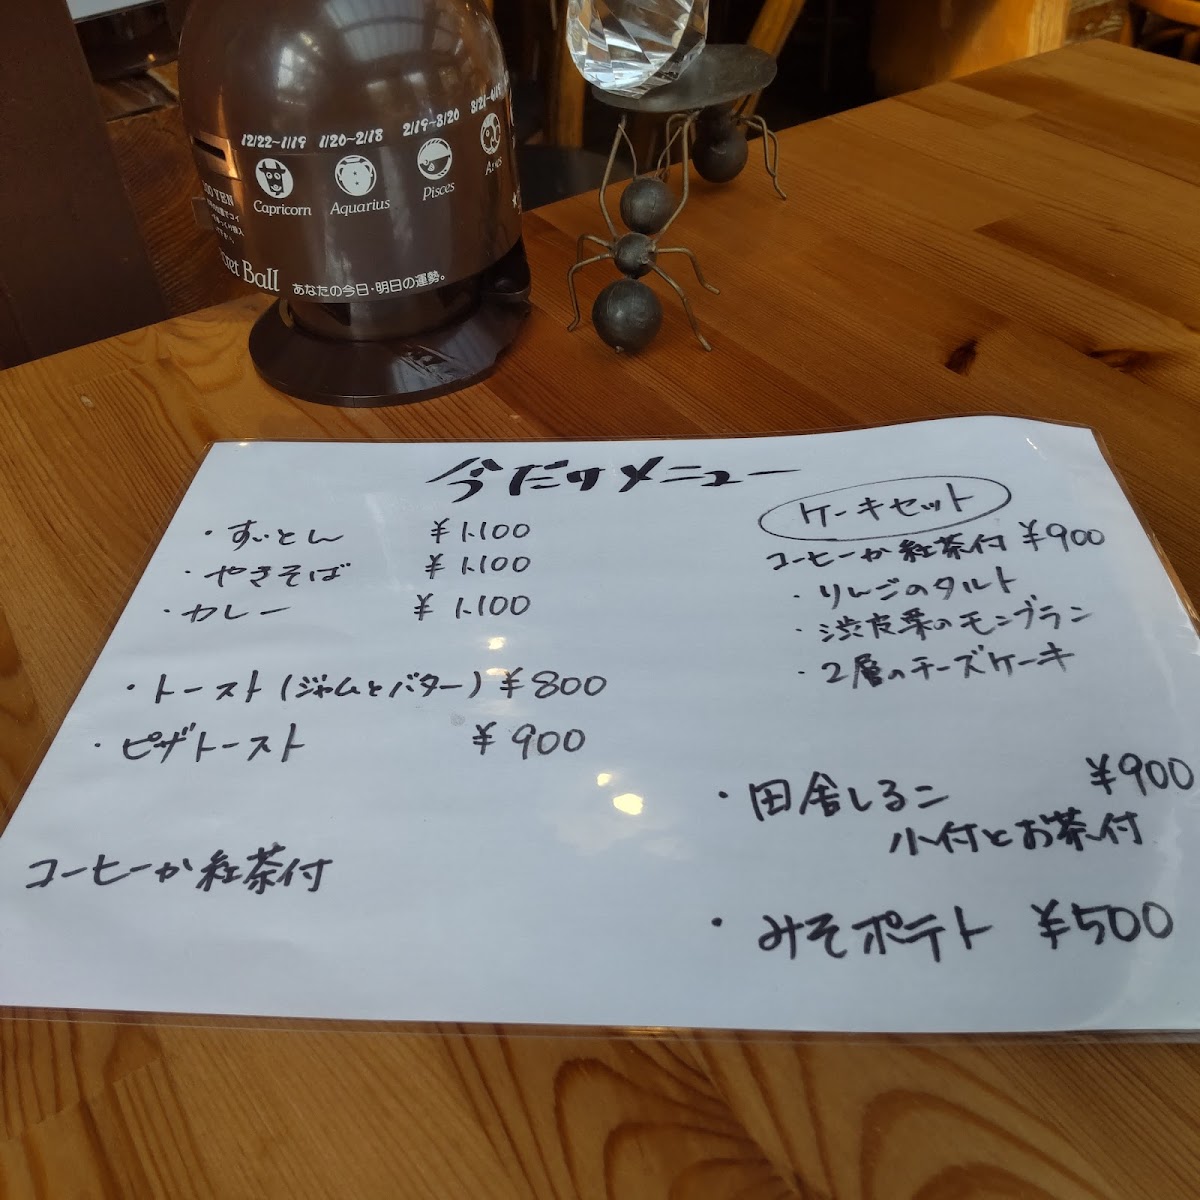 12/22~1/19 1/20~2/18 2/19~3/20 3/21~4/19
Capricorn Aquarius Pisces Aries
00 YEN
ret Ball
あなたの今日・明日の運勢。
今だけメニュー
・すいとん ¥1.100
・やきそば ¥1.100
・カレー ¥1.100
・トースト(ジャムとバター) ¥800
・ピザトースト ¥900
コーヒーか紅茶付
ケーキセット
コーヒーか紅茶付 ¥900
・りんごのタルト
・渋皮栗のモンブラン
・2層のチーズケーキ
・田舎しるこ ¥900
小付とお茶付
・みそポテト ¥500